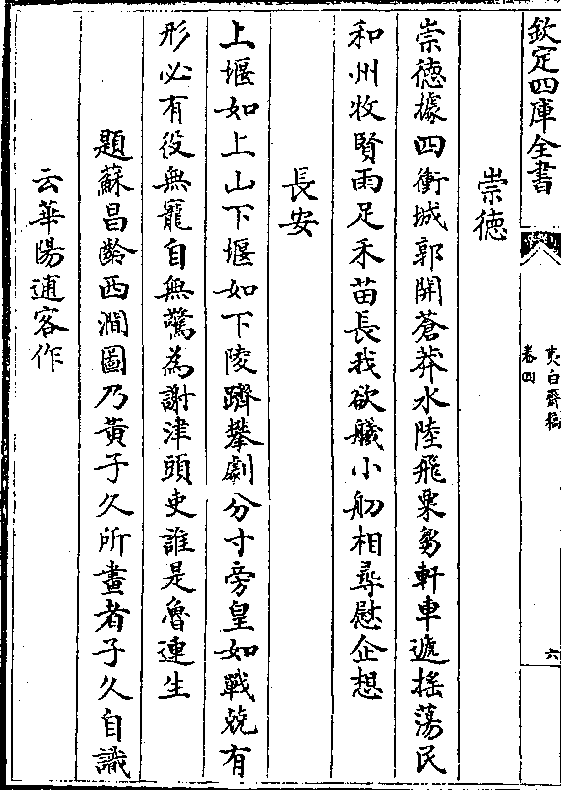 欽定四庫全書
夷白齋稿
卷四
六
崇德
崇德據四衝城郭開蒼莽水陸飛粟芻軒車遞搖蕩民
和州牧賢雨足禾苗長我欲艤小舠相尋慰企想
長安
上堰如上山下堰如下陵躋攀劇分寸旁皇如戰兢有
形必有役無寵自無驚為謝津頭吏誰是魯連生
題蘇昌齡西澗圖乃黃子久所畫者子久自識
云華陽逋客作